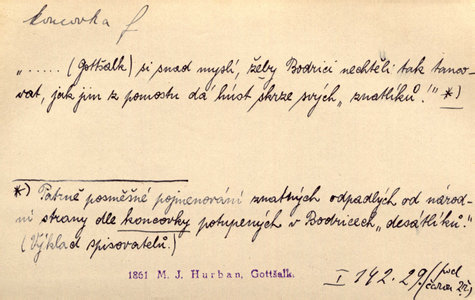 koncovka f
„..... (Gottšalk) si snad myslí, žeby Bodrici nechtěli tak tanco-
vat, jak jim z pomostu dá húst skrze svých „znatlíků!“ *)
*) Patrně posměšné pojmenování znatných odpadlých od národ-
ní strany dle koncovky potupených v Bodricech „desátlíků.“
(Výklad spisovatelů.)
1861 M. J. Hurban, Gottšalk.
I 142. 29 (pod
čarou